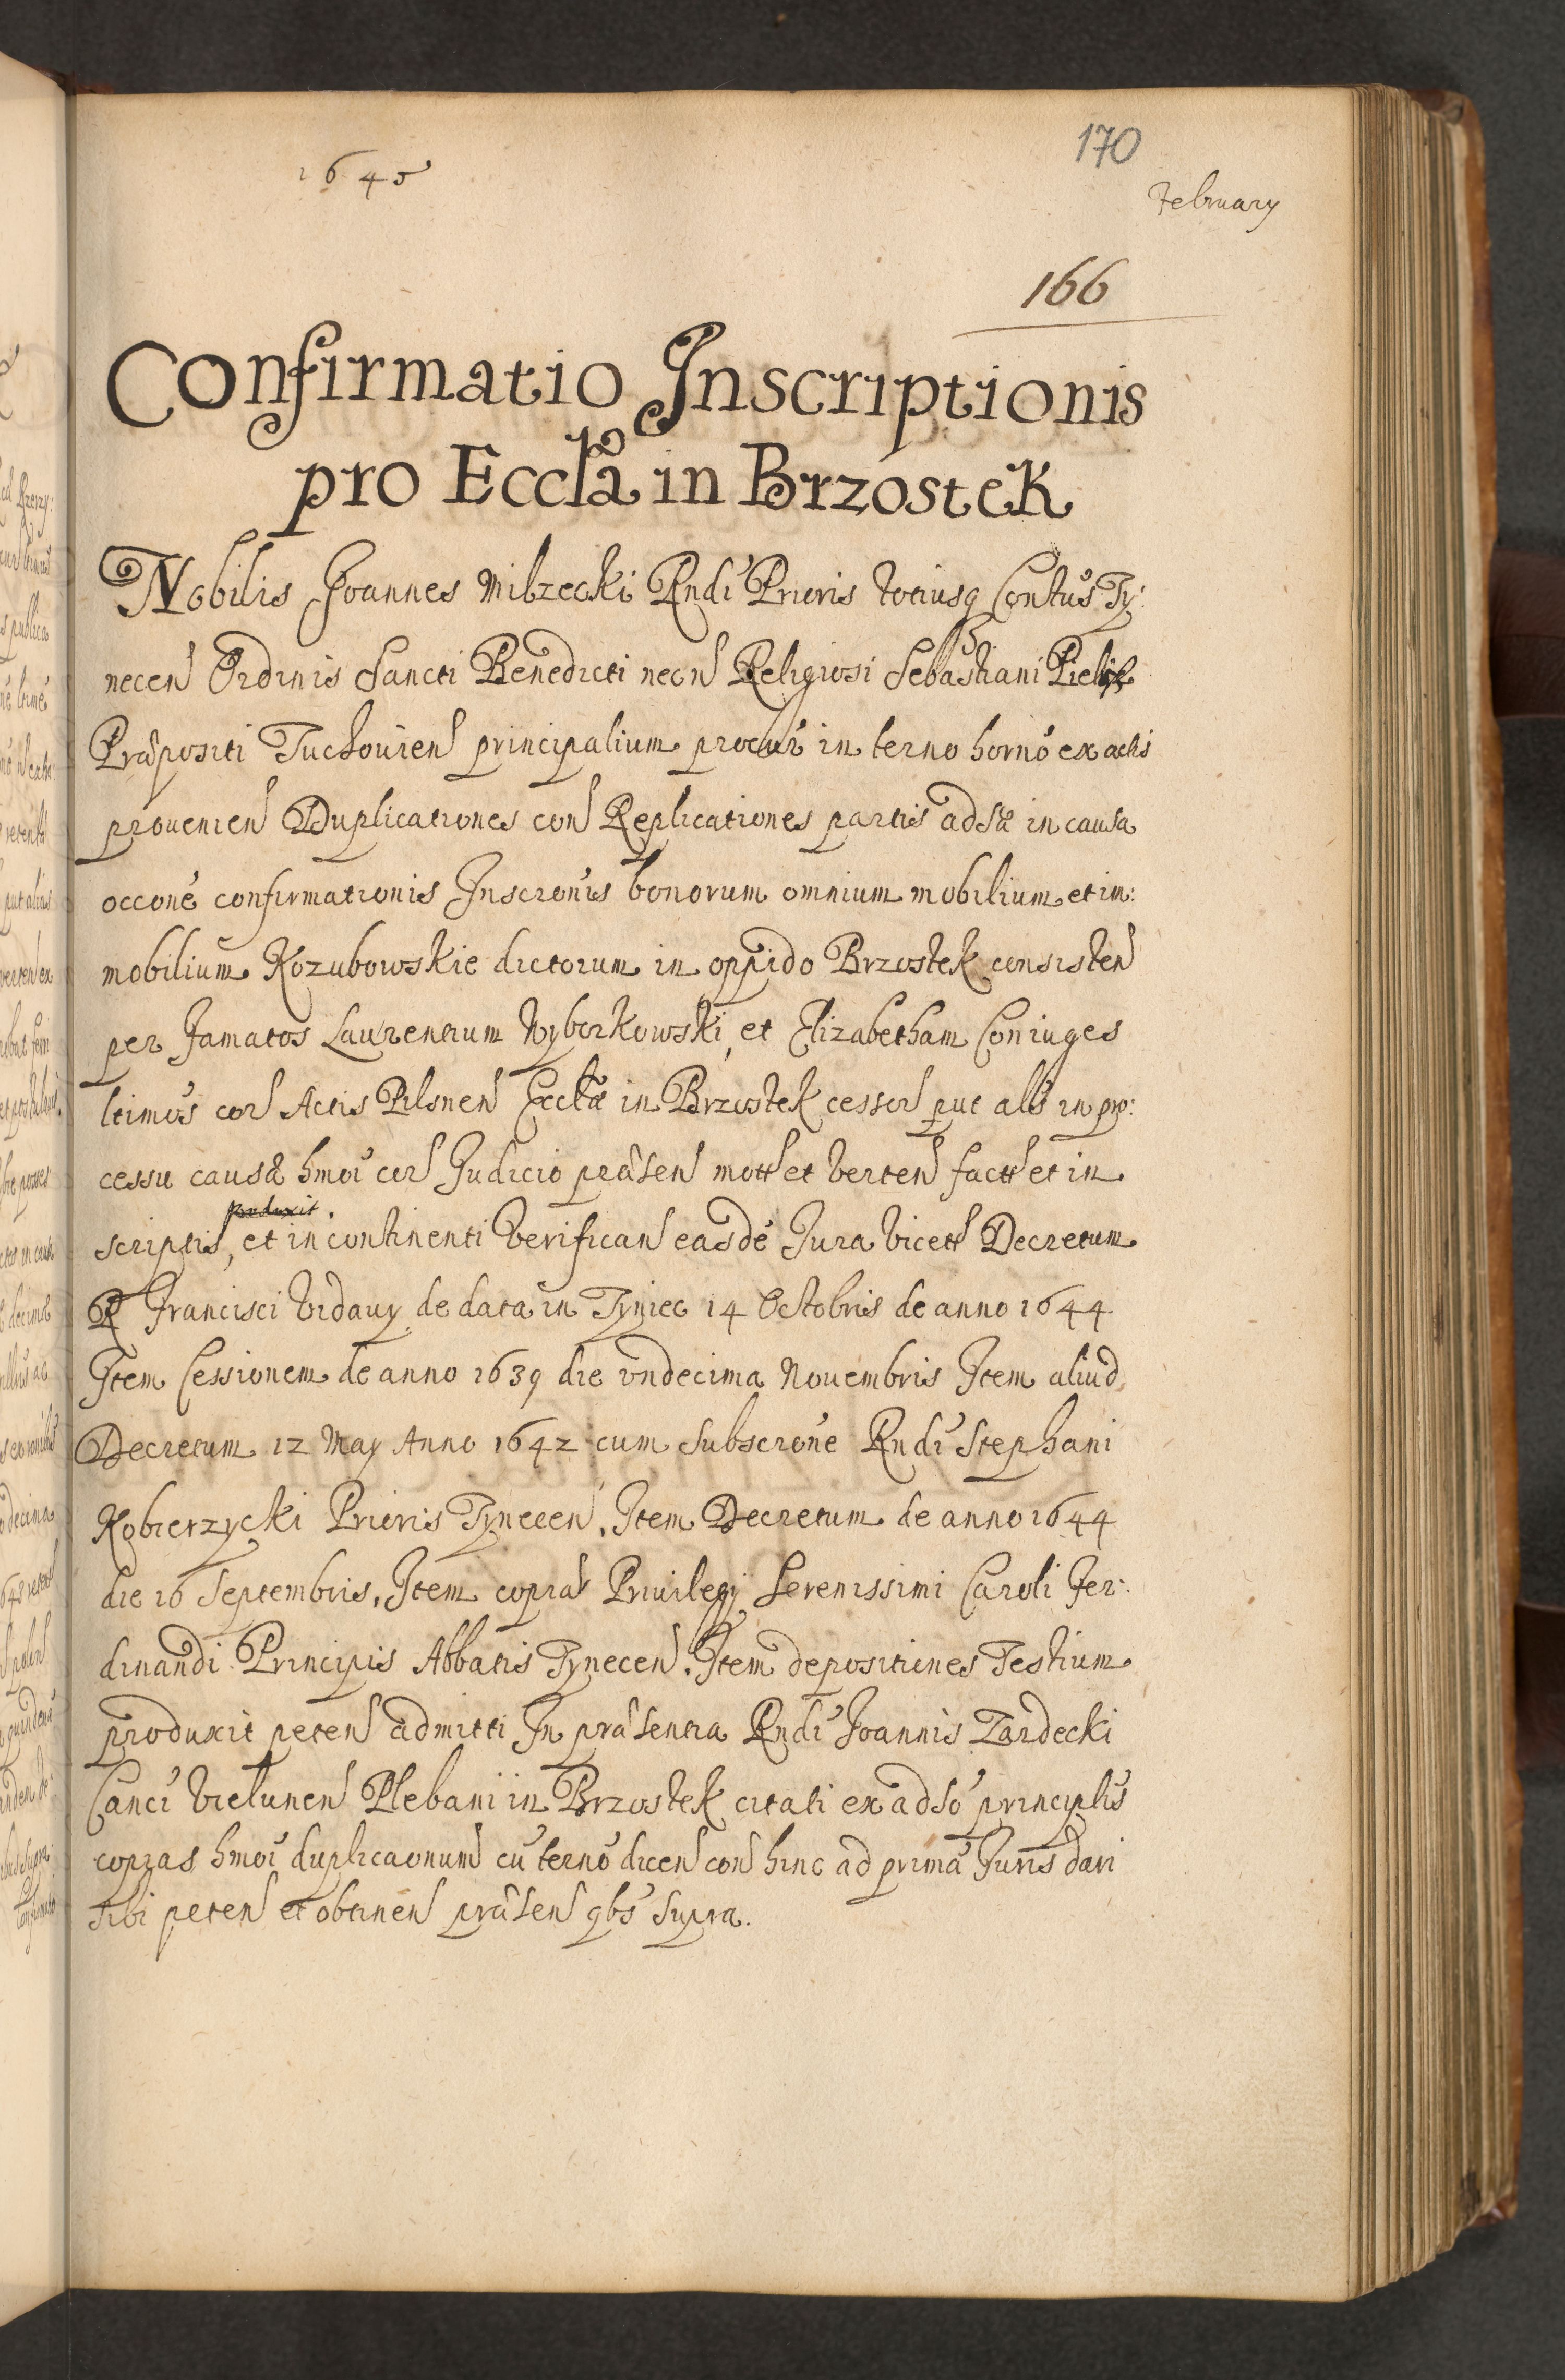 1645
170
February
166
Confirmatio Inscriptionis
pro Eccła in Brzostek
Nobilis Joannes Milzecki Rndi Prioris totiusq Contus Ty:
necen Ordinis Sancti Benedicti necn Religiosi Sebastiani
Præpositi Tuchouien principalium procur in terno horno ex actis
prouenien Duplicationes con Replicationes partis adsæ in causa
occone confirmationis Inscronis bonorum omnium mobilium et im:
mobilium Kozubowskie dictorum in oppido Brzostek consisten
per Famatos Laurentium Wyborkowski, et Elizabetham Coniuges
ltimos cor Actis Pilsnen Ecclæ in Brzostek cessor put als in pro:
cessu causæ hmoi cor Judicio præsen mott et verten factt et in
produxit.
scriptis, et in continenti verifican easde Jura vicett Decretum
R Francisci Vidauy de data in Tyniec 14 Octobris de anno 1644
Item Cessionem de anno 1639 die vndecima Nouembris Item aliud
Decretum 12 May Anno 1642 cum subscrone Rndi Stephani
Kobierzycki Prioris Tynecen, Item Decretum de anno 1644
die 16 Septembris, Item copias Priuilegij Serenissimi Caroli Fer:
dinandi Principis Abbatis Tynecen. Item depositiones Testium
produxit peten admitti In præsentia Rndi Joannis Zardecki
Canci Vielunen Plebani in Brzostek citati ex adso principlis
copias hmoi duplicaonum cu terno dicen con hinc ad prima Juris dari
sibi peten et obtinen præsen qbs supra.